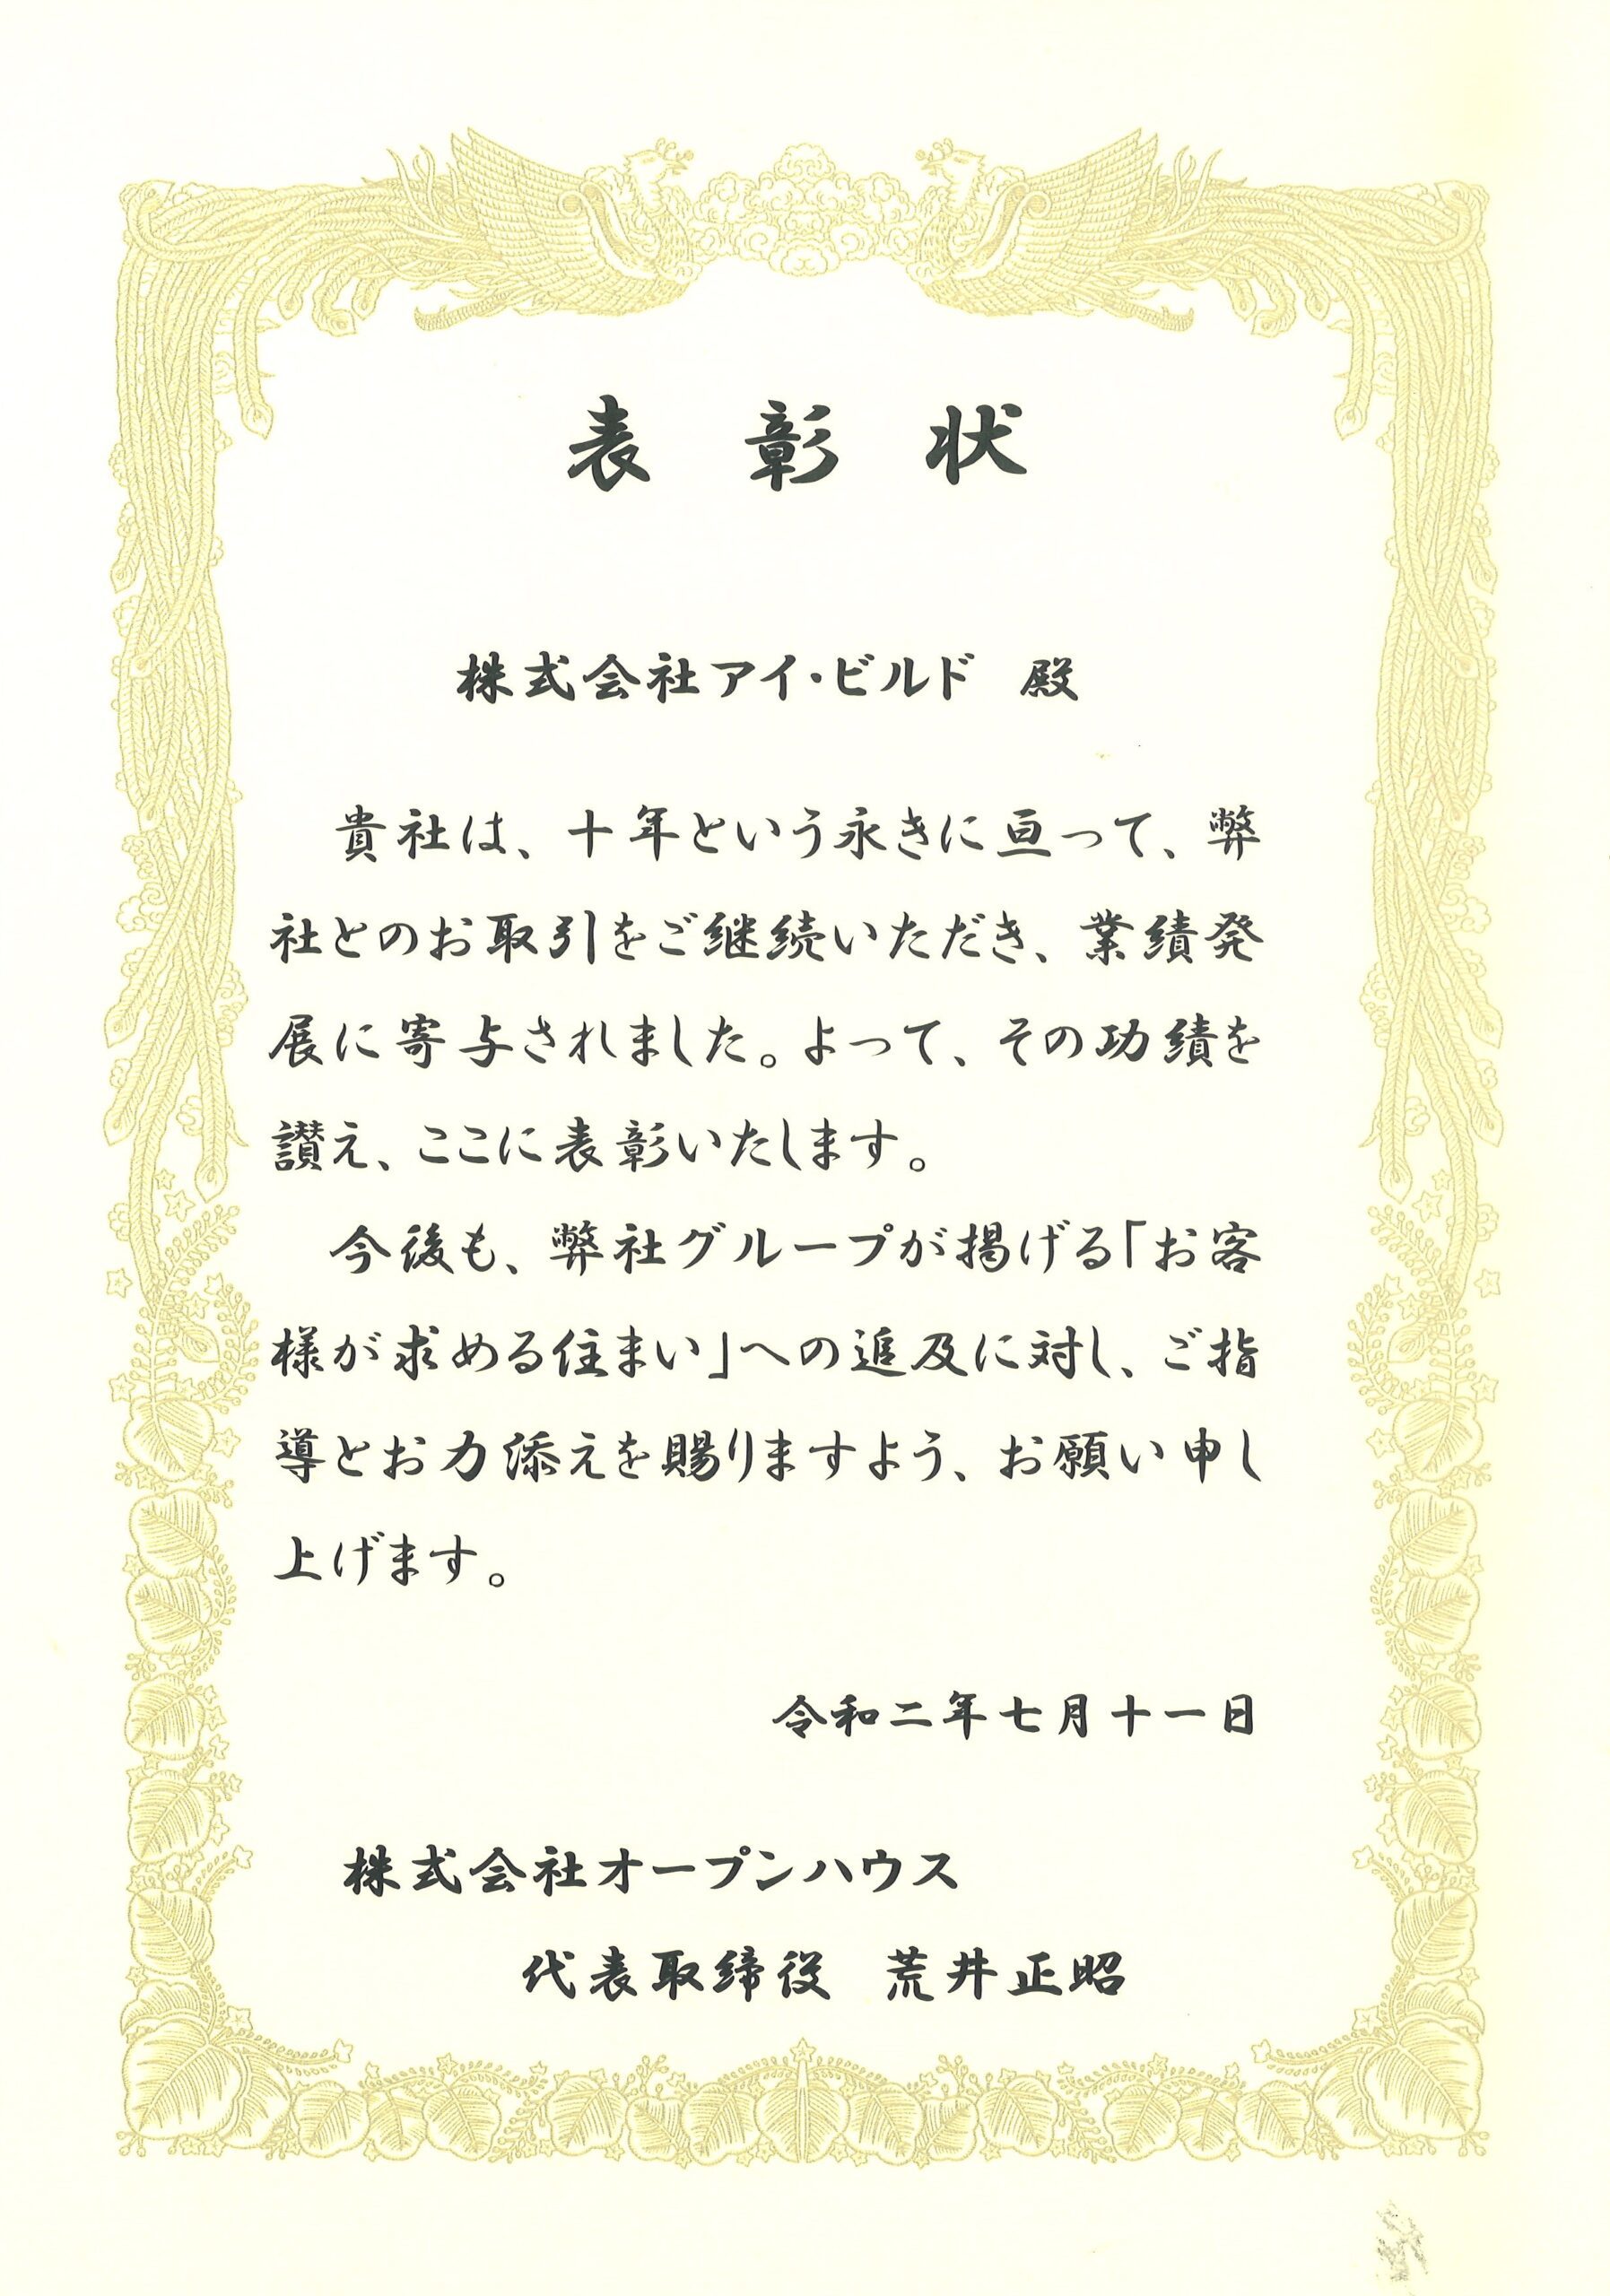 表彰状
株式会社アイ・ビルド 殿
貴社は、十年という永きに亘って、弊
社とのお取引をご継続いただき、業績発
展に寄与されました。よって、その功績を
讃え、ここに表彰いたします。
今後も、弊社グループが掲げる「お客
様が求める住まい」への追及に対し、ご指
導とお力添えを賜りますよう、お願い申し
上げます。
令和二年七月十一日
株式会社オープンハウス
代表取締役 荒井正昭